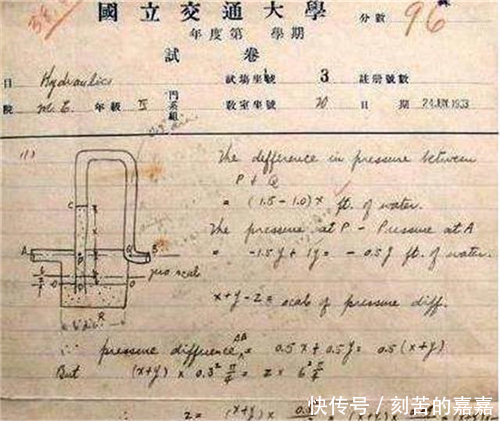 國立交通大學
分數 96
年度第 學期
試卷
Hydraulics 試場坐號 3 註冊號數
院 M.E. 年級 IV 門系組 教室坐號 20 日期 24 JUN 1933
(1)
The difference in pressure between
P & Q
= (1.5-1.0)x ft. of water.
The pressure at P - Pressure at A
= -1.5y + 1y = -0.5y ft. of water.
zero scale
x+y-z = scale of pressure diff.
∴ pressure difference AB = 0.5x + 0.5y = 0.5(x+y)
But (x+y) × 0.3² π/4 = z × 6² π/4
快传号/刻苦的嘉嘉